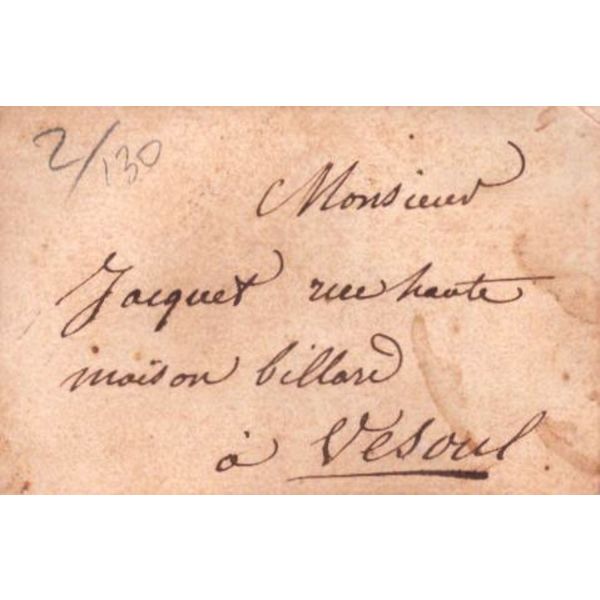 2/130
Monsieur
Jacquet rue haute
maison billard
à Vesoul